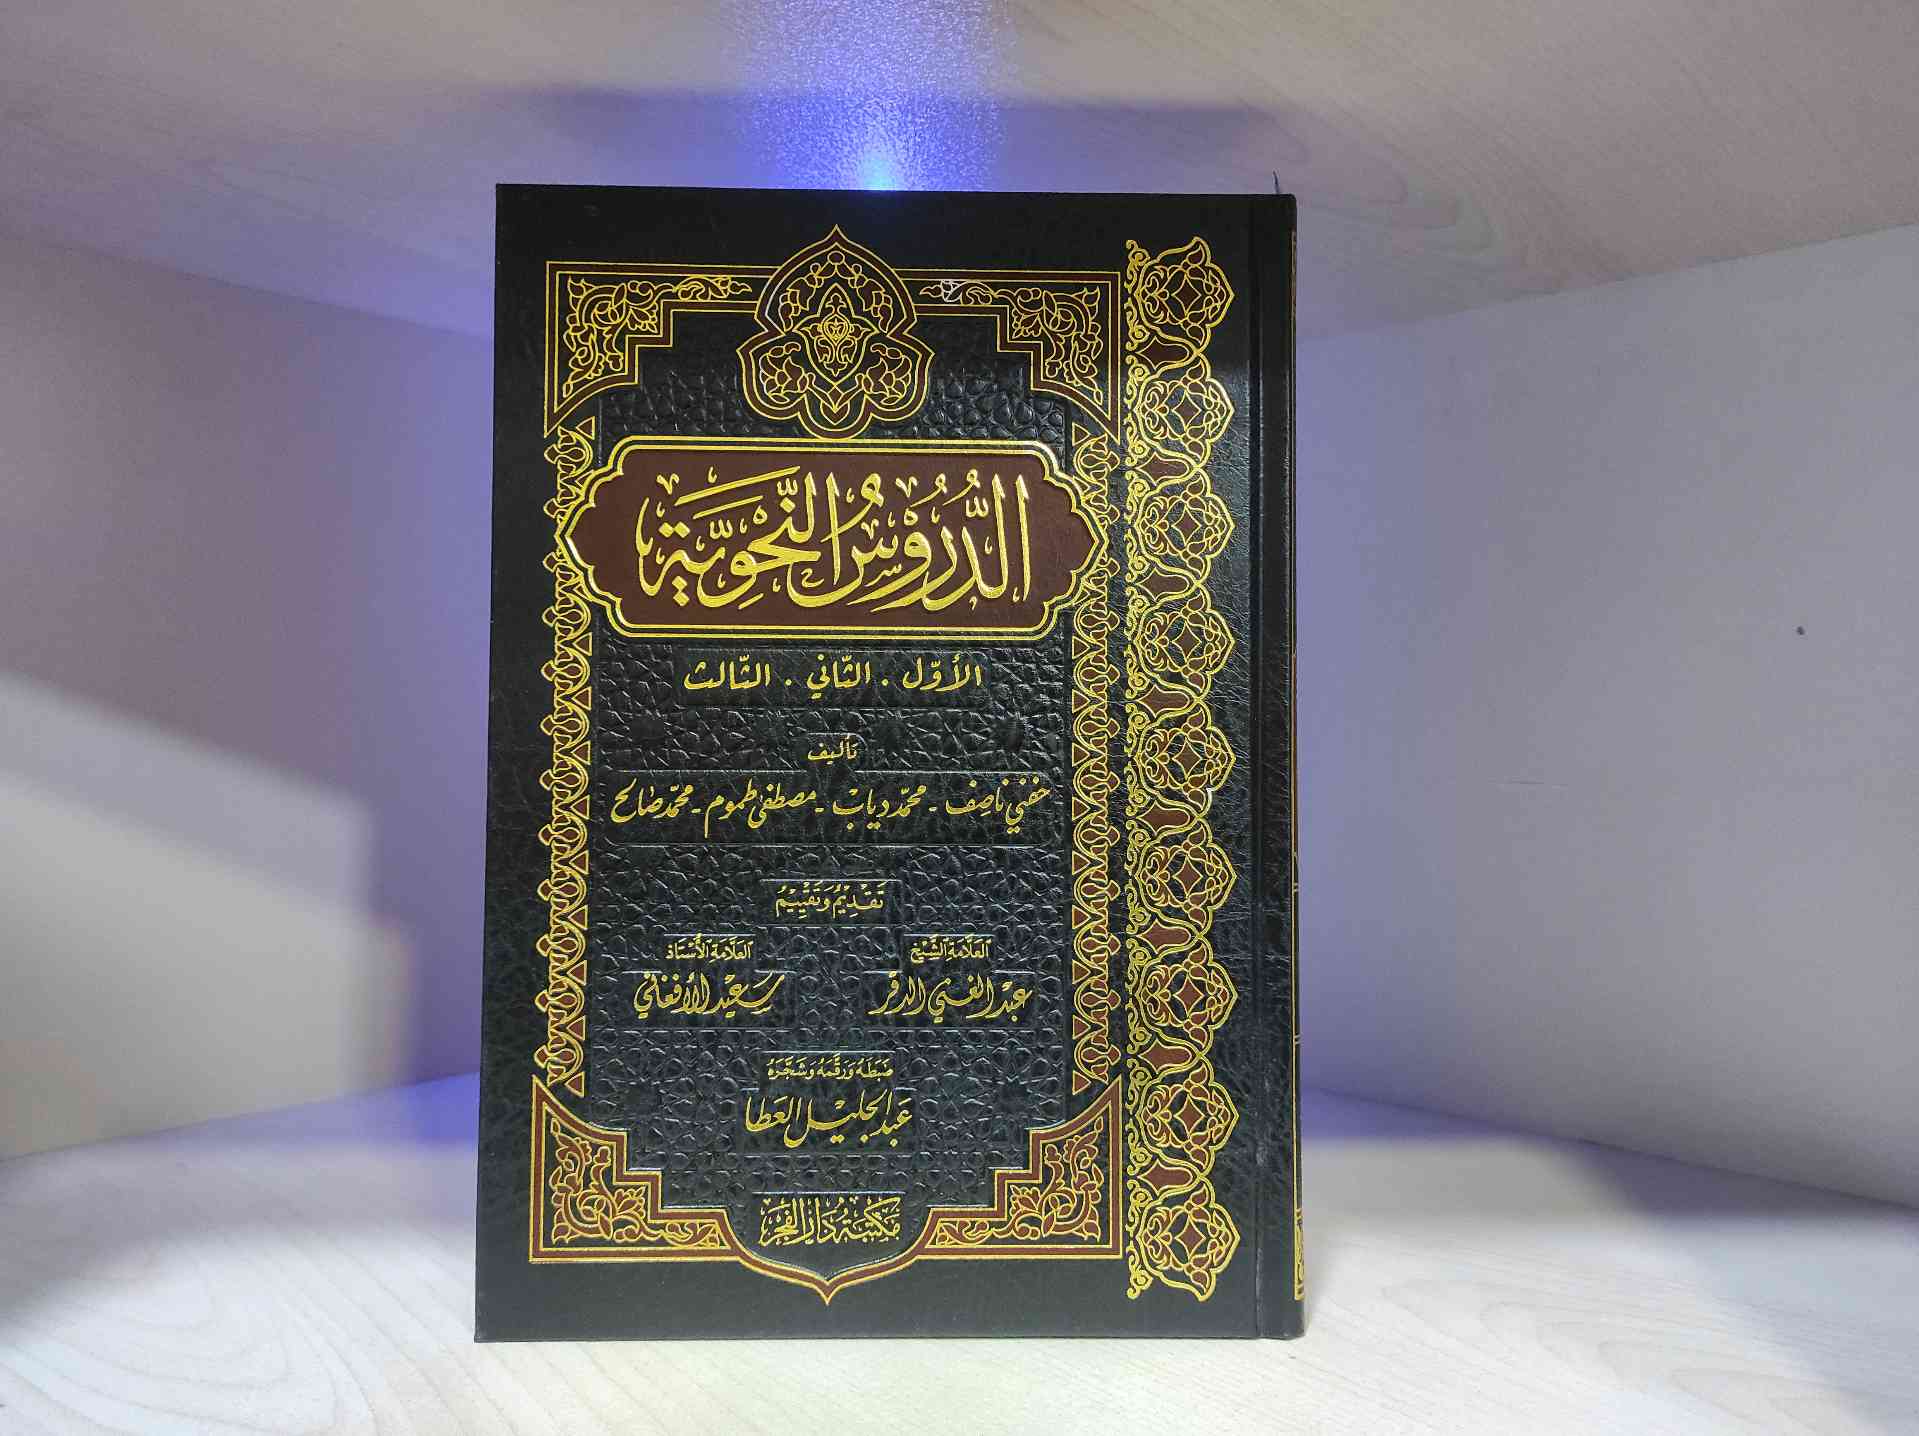 الدُّرُوسُ النَّحْوِيَّة
الأوّل . الثّاني . الثّالث
تأليف
حفني ناصف - محمّد دياب - مصطفى طموم - محمّد صالح
تَقْدِيْمُ وَتَقْيِيْمُ
العَلَّامَة الشَّيْخ
عبْد الغَني الدقر
العَلَّامَة الأُسْتَاذ
سَعيْد الأفغاني
ضَبَطَهُ وَرَقَّمَهُ وَشَجَّرَهُ
عَبْد الجَليْل العَطا
مَكْتَبَةُ دَارِ الفَجْر